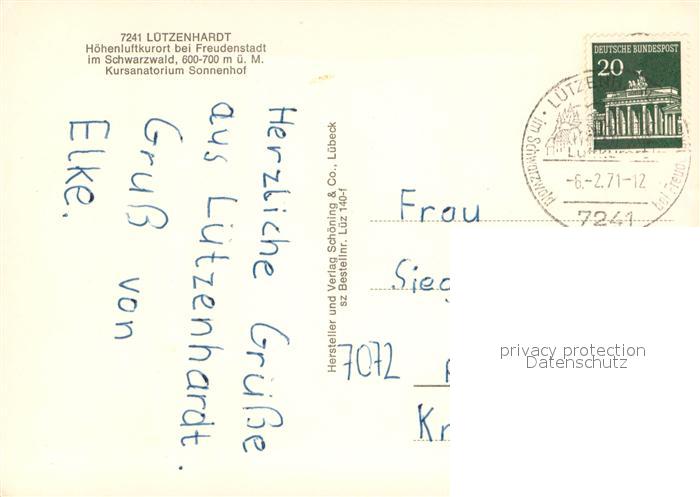 7241 LÜTZENHARDT
Höhenluftkurort bei Freudenstadt
im Schwarzwald, 600-700 m ü. M.
Kursanatorium Sonnenhof
Herzliche Grüße
aus Lützenhardt.
Gruß von
Elke.
Hersteller und Verlag Schöning & Co., Lübeck
sz Bestellnr. Lüz 140-f
DEUTSCHE BUNDESPOST
20
im Schwarzwald
-6.-2.71-12
7241
Frau
7072
privacy protection
Datenschutz